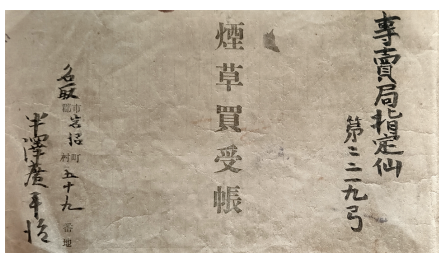 專賣局指定仙
第二二九号
煙草買受帳
名取市郡岩沼町村五十九番地
半澤廣平治